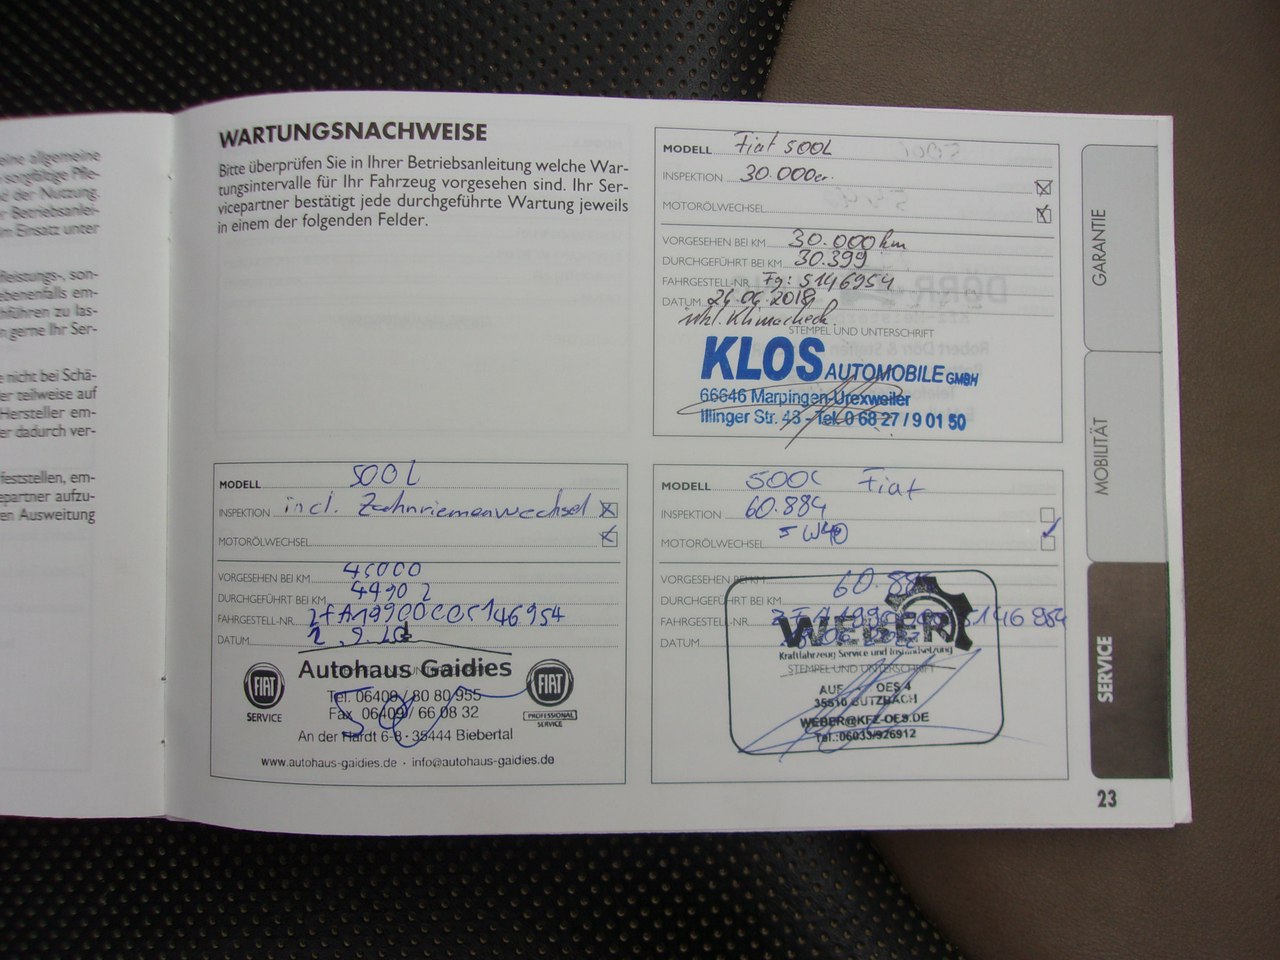 eine allgemeine
sorgfältige Pfle-
d der Nutzung.
r Betriebsanlei-
m Einsatz unter
fleistungs-, son-
ebenenfalls em-
hführen zu las-
n gerne Ihr Ser-
e nicht bei Schä-
er teilweise auf
Hersteller em-
er dadurch ver-
feststellen, em-
epartner aufzu-
en Ausweitung
WARTUNGSNACHWEISE
Bitte überprüfen Sie in Ihrer Betriebsanleitung welche War-
tungsintervalle für Ihr Fahrzeug vorgesehen sind. Ihr Ser-
vicepartner bestätigt jede durchgeführte Wartung jeweils
in einem der folgenden Felder.
MODELL Fiat 500L
INSPEKTION 30.000er
MOTORÖLWECHSEL
VORGESEHEN BEI KM 30.000km
DURCHGEFÜHRT BEI KM 30.399
FAHRGESTELL-NR. Fg: 5146954
DATUM 26.06.2018
inkl. Klimacheck
STEMPEL UND UNTERSCHRIFT
KLOS AUTOMOBILE GMBH
66646 Marpingen-Urexweiler
Illinger Str. 43 - Tel. 0 68 27 / 9 01 50
MODELL 500L
INSPEKTION incl. Zahnriemenwechsel
MOTORÖLWECHSEL
VORGESEHEN BEI KM 45000
DURCHGEFÜHRT BEI KM 44902
FAHRGESTELL-NR.
DATUM
Autohaus Gaidies
FIAT
SERVICE
Tel. 06409 / 80 80 955
Fax 06409 / 66 08 32
An der Hardt 6-8 · 35444 Biebertal
FIAT
PROFESSIONAL
SERVICE
www.autohaus-gaidies.de · info@autohaus-gaidies.de
MODELL 500L Fiat
INSPEKTION 60.884
MOTORÖLWECHSEL 5W40
VORGESEHEN BEI KM
DURCHGEFÜHRT BEI KM 60.884
FAHRGESTELL-NR.
DATUM
WEBER
Kraftfahrzeug Service und Instandsetzung
STEMPEL UND UNTERSCHRIFT
OES 4
35510 BUTZBACH
WEBER@KFZ-OES.DE
Tel.:06033/926912
GARANTIE
MOBILITÄT
SERVICE
23